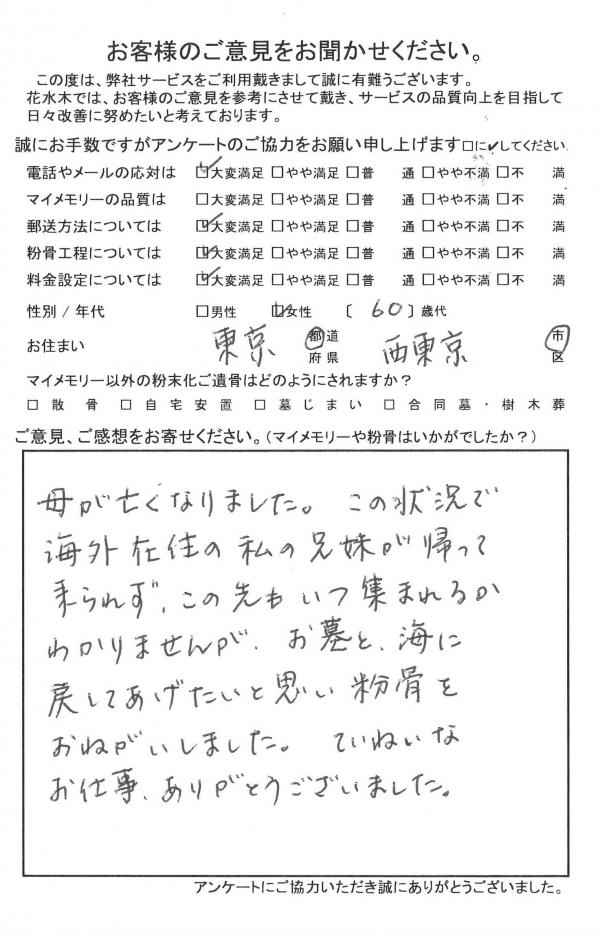 お客様のご意見をお聞かせください。
この度は、弊社サービスをご利用戴きまして誠に有難うございます。
花水木では、お客様のご意見を参考にさせて戴き、サービスの品質向上を目指して
日々改善に努めたいと考えております。
誠にお手数ですがアンケートのご協力をお願い申し上げます□に✓してください
電話やメールの応対は ☑大変満足 □やや満足 □普 通 □やや不満 □不 満
マイメモリーの品質は □大変満足 □やや満足 □普 通 □やや不満 □不 満
郵送方法については ☑大変満足 □やや満足 □普 通 □やや不満 □不 満
粉骨工程については ☑大変満足 □やや満足 □普 通 □やや不満 □不 満
料金設定については ☑大変満足 □やや満足 □普 通 □やや不満 □不 満
性別 / 年代 □男性 ☑女性 〔 60 〕歳代
お住まい 東京 都道府県 西東京 市区
マイメモリー以外の粉末化ご遺骨はどのようにされますか?
□ 散骨 □ 自宅安置 □ 墓じまい □ 合同墓・樹木葬
ご意見、ご感想をお寄せください。(マイメモリーや粉骨はいかがでしたか?)
母が亡くなりました。この状況で
海外在住の私の兄妹が帰って
来られず、この先もいつ集まれるか
わかりませんが、お墓と、海に
戻してあげたいと思い粉骨を
おねがいしました。ていねいな
お仕事、ありがとうございました。
アンケートにご協力いただき誠にありがとうございました。